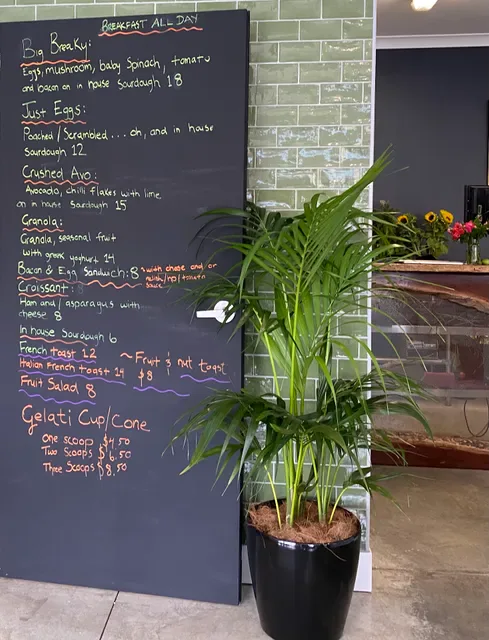 BREAKFAST ALL DAY
Big Breaky:
Eggs, mushroom, baby Spinach, tomato
and bacon on in house Sourdough 18
Just Eggs:
Poached / Scrambled ... oh, and in house
Sourdough 12
Crushed Avo:
Avocado, chilli flakes with lime
on in house Sourdough 15
Granola:
Granola, seasonal fruit
with greek yoghurt 14
Bacon & Egg Sandwich: 8 with cheese and/or
relish/ / tomato
sauce
Croissant:
Ham and / asparagus with
cheese 8
In house Sourdough 6
French toast 12
Italian French toast 14
Fruit Salad 8
~ Fruit & nut toast
$8
Gelati Cup/Cone
One scoop $4.50
Two Scoops $6.50
Three Scoops $8.50